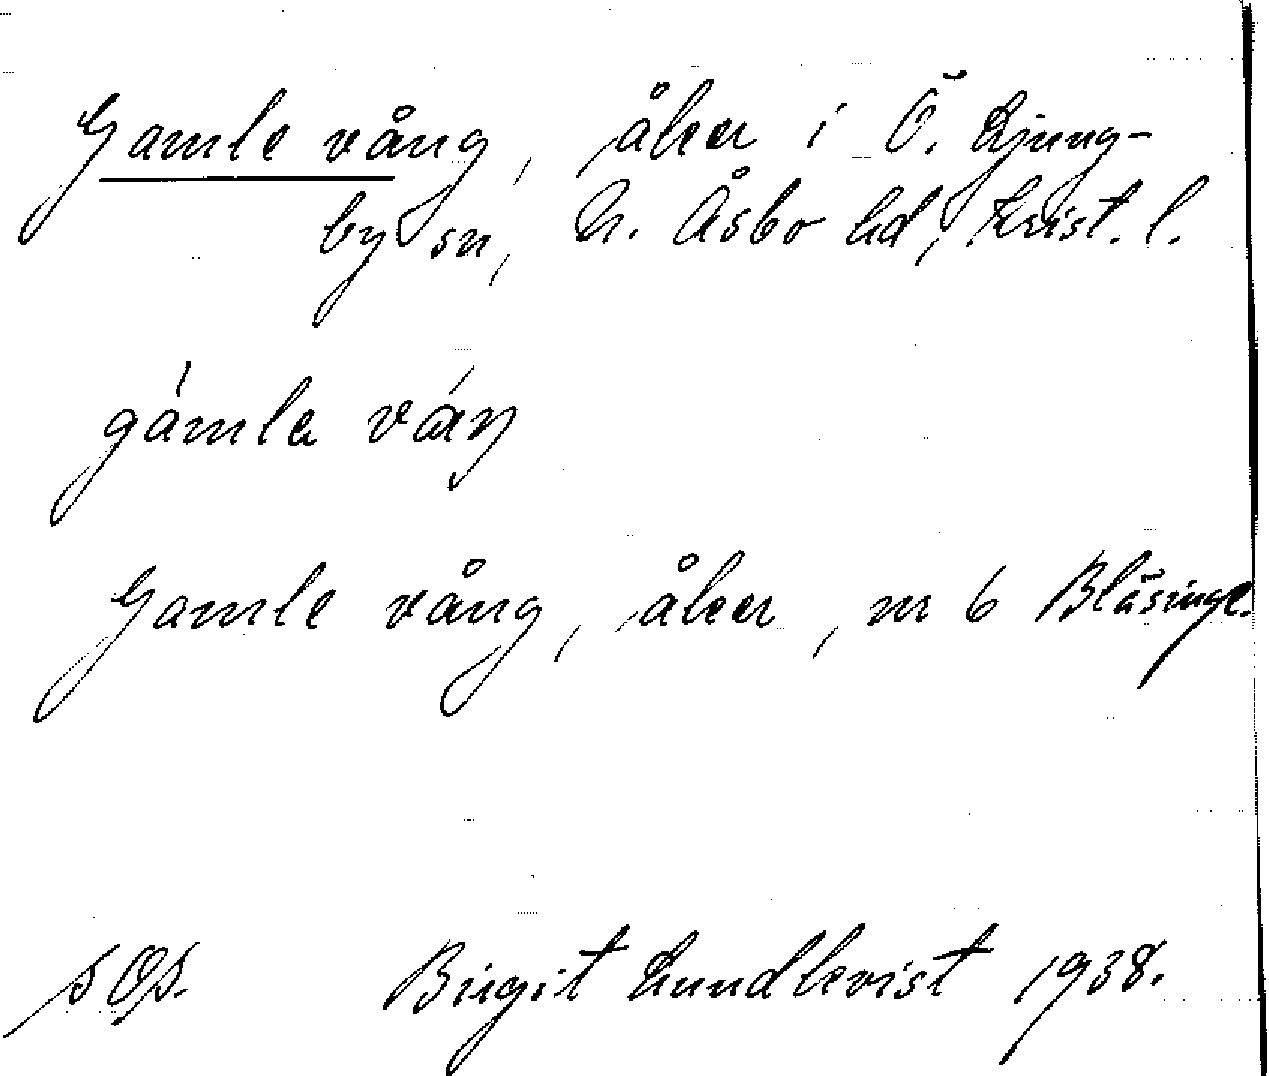 Gamle vång, åker i Ö. Ljung-
by sn, N. Åsbo hd, Krist. l.
gámla váŋ
Gamle vång, åker, nr 6 Bläsinge.
Birgit Lundkvist 1938.